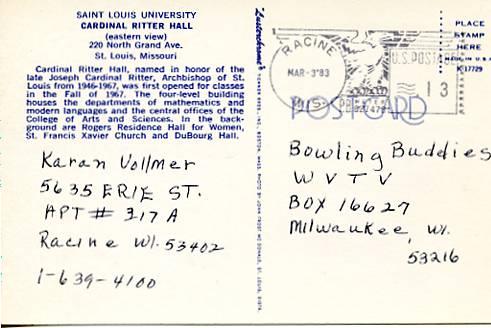 SAINT LOUIS UNIVERSITY
CARDINAL RITTER HALL
(eastern view)
220 North Grand Ave.
St. Louis, Missouri
Cardinal Ritter Hall, named in honor of the
late Joseph Cardinal Ritter, Archbishop of St.
Louis from 1946-1967, was first opened for classes
in the Fall of 1967. The four-level building
houses the departments of mathematics and
modern languages and the central offices of the
College of Arts and Sciences. In the back-
ground are Rogers Residence Hall for Women,
St. Francis Xavier Church and DuBourg Hall.
Karan Vollmer
5635 ERIE ST.
APT # 317A
Racine WI. 53402
1-639-4100
RACINE
MAR-3'83
WIS
U.S. POSTAGE
13
PLACE
STAMP
HERE
K 17729
POSTCARD
Bowling Buddies
WVTV
BOX 16627
Milwaukee, WI.
53216